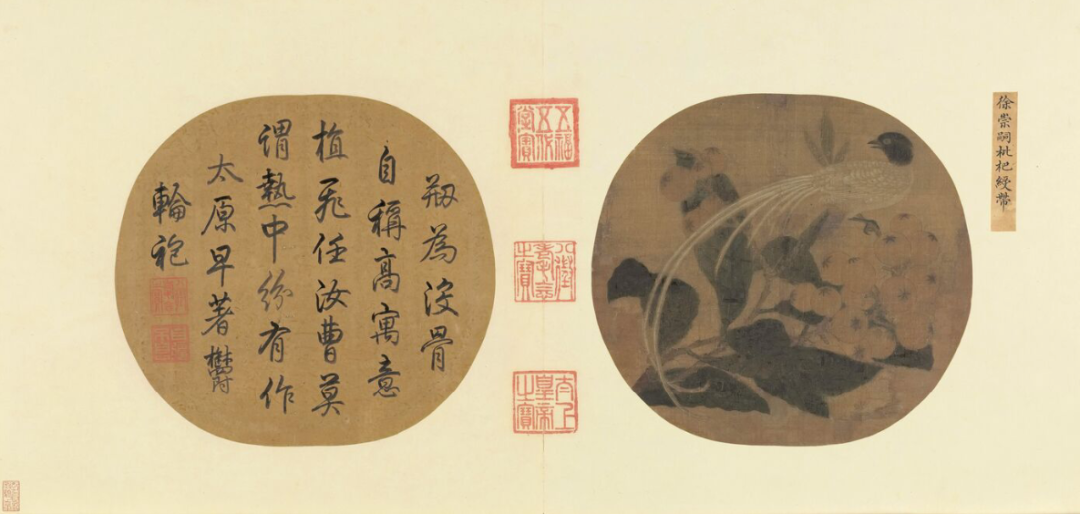 徐崇嗣枇杷綬帶
五福五代堂寶
八徵耄念之寶
太上皇帝之寶
剏為沒骨
自稱高寓意
植飛任汝曹莫
謂熱中紛有作
太原早著欝
輪袍